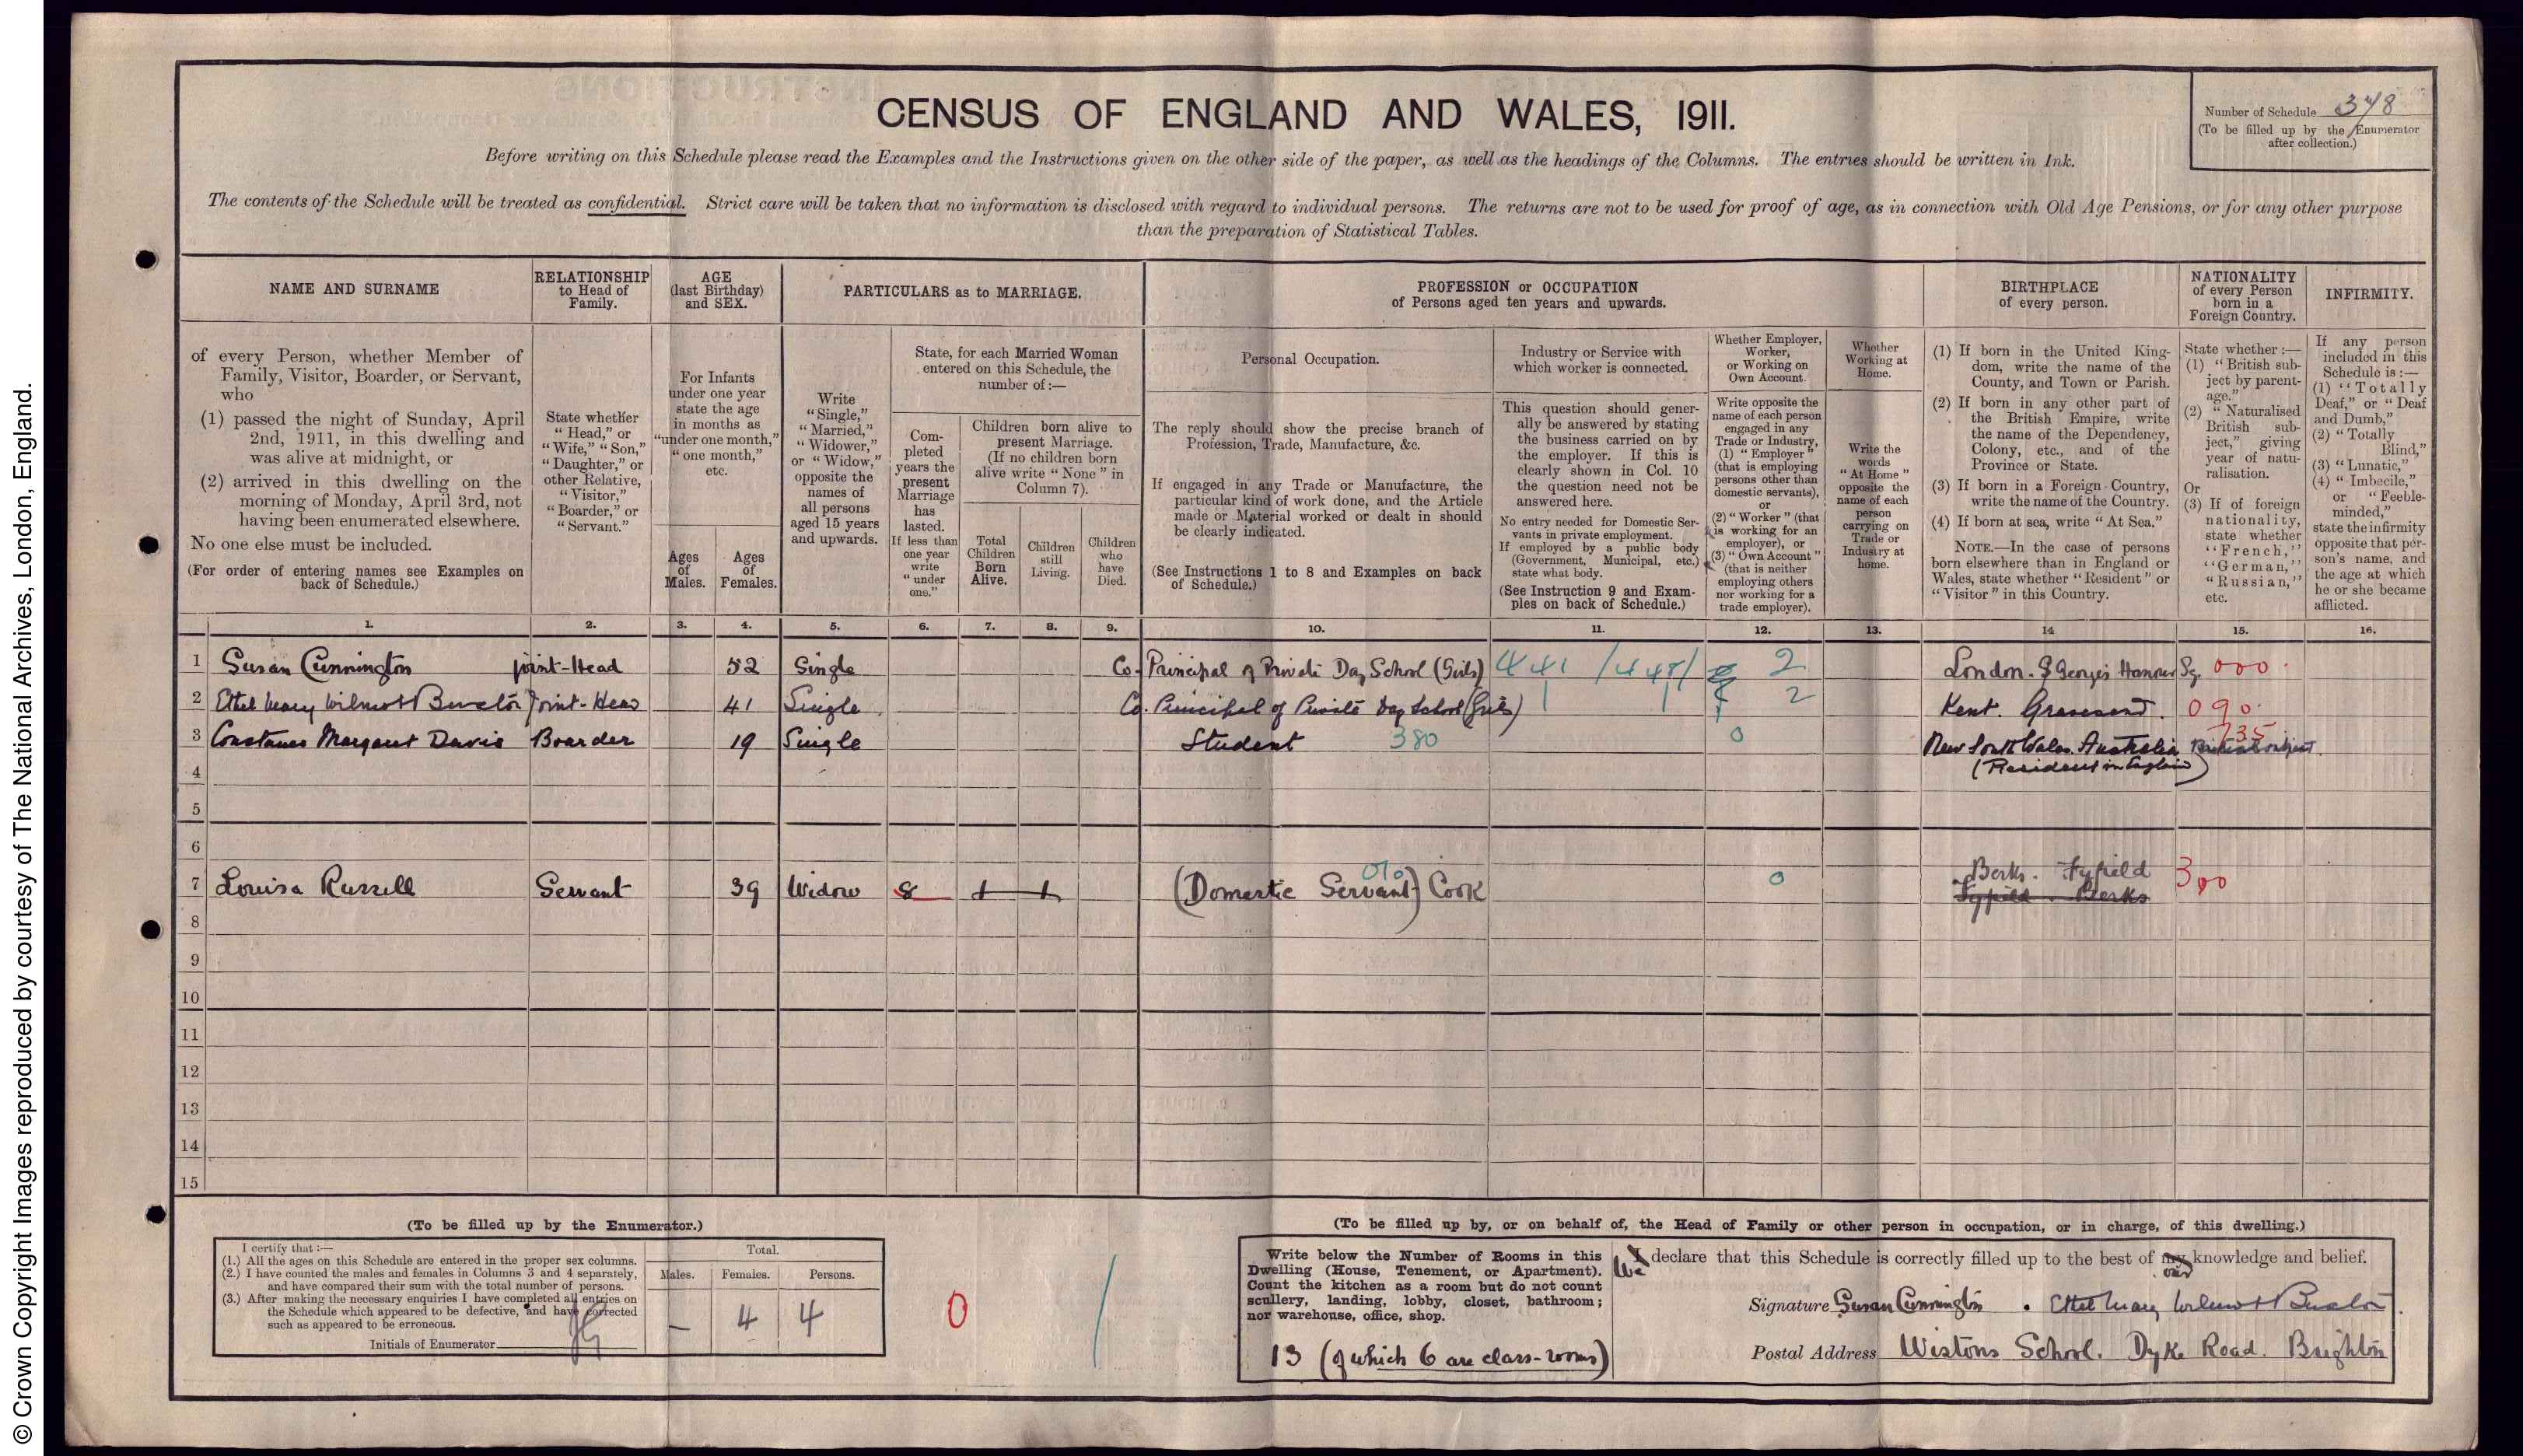 © Crown Copyright Images reproduced by courtesy of The National Archives, London, England.
CENSUS OF ENGLAND AND WALES, 1911.
Number of Schedule 348
(To be filled up by the Enumerator
after collection.)
Before writing on this Schedule please read the Examples and the Instructions given on the other side of the paper, as well as the headings of the Columns. The entries should be written in Ink.
The contents of the Schedule will be treated as confidential. Strict care will be taken that no information is disclosed with regard to individual persons. The returns are not to be used for proof of age, as in connection with Old Age Pensions, or for any other purpose
than the preparation of Statistical Tables.
NAME AND SURNAME
of every Person, whether Member of
Family, Visitor, Boarder, or Servant,
who
(1) passed the night of Sunday, April
2nd, 1911, in this dwelling and
was alive at midnight, or
(2) arrived in this dwelling on the
morning of Monday, April 3rd, not
having been enumerated elsewhere.
No one else must be included.
(For order of entering names see Examples on
back of Schedule.)
RELATIONSHIP
to Head of
Family.
State whether
“Head,” or
“Wife,” “Son,”
“Daughter,” or
other Relative,
“Visitor,”
“Boarder,” or
“Servant.”
AGE
(last Birthday)
and SEX.
For Infants
under one year
state the age
in months as
“under one month,”
“one month,”
etc.
Ages
of
Males.
Ages
of
Females.
PARTICULARS as to MARRIAGE.
Write
“Single,”
“Married,”
“Widower,”
or “Widow,”
opposite the
names of
all persons
aged 15 years
and upwards.
State, for each Married Woman
entered on this Schedule, the
number of:—
Com-
pleted
years the
present
Marriage
has
lasted.
If less than
one year
write
“under
one.”
Children born alive to
present Marriage.
(If no children born
alive write “None” in
Column 7).
Total
Children
Born
Alive.
Children
still
Living.
Children
who
have
Died.
PROFESSION or OCCUPATION
of Persons aged ten years and upwards.
Personal Occupation.
The reply should show the precise branch of
Profession, Trade, Manufacture, &c.
If engaged in any Trade or Manufacture, the
particular kind of work done, and the Article
made or Material worked or dealt in should
be clearly indicated.
(See Instructions 1 to 8 and Examples on back
of Schedule.)
Industry or Service with
which worker is connected.
This question should gener-
ally be answered by stating
the business carried on by
the employer. If this is
clearly shown in Col. 10
the question need not be
answered here.
No entry needed for Domestic Ser-
vants in private employment.
If employed by a public body
(Government, Municipal, etc.)
state what body.
(See Instruction 9 and Exam-
ples on back of Schedule.)
Whether Employer,
Worker,
or Working on
Own Account.
Write opposite the
name of each person
engaged in any
Trade or Industry,
(1) “Employer”
(that is employing
persons other than
domestic servants),
or
(2) “Worker” (that
is working for an
employer), or
(3) “Own Account”
(that is neither
employing others
nor working for a
trade employer).
Whether
Working at
Home.
Write the
words
“At Home”
opposite the
name of each
person
carrying on
Trade or
Industry at
home.
BIRTHPLACE
of every person.
(1) If born in the United King-
dom, write the name of the
County, and Town or Parish.
(2) If born in any other part of
the British Empire, write
the name of the Dependency,
Colony, etc., and of the
Province or State.
(3) If born in a Foreign Country,
write the name of the Country.
(4) If born at sea, write “At Sea.”
NOTE.—In the case of persons
born elsewhere than in England or
Wales, state whether “Resident” or
“Visitor” in this Country.
NATIONALITY
of every Person
born in a
Foreign Country.
State whether:—
(1) “British sub-
ject by parent-
age.”
(2) “Naturalised
British sub-
ject,” giving
year of natu-
ralisation.
Or
(3) If of foreign
nationality,
state whether
“French,”
“German,”
“Russian,”
etc.
INFIRMITY.
If any person
included in this
Schedule is:—
(1) “Totally
Deaf,” or “Deaf
and Dumb,”
(2) “Totally
Blind,”
(3) “Lunatic,”
(4) “Imbecile,”
or “Feeble-
minded,”
state the infirmity
opposite that per-
son's name, and
the age at which
he or she became
afflicted.
1. 2. 3. 4. 5. 6. 7. 8. 9. 10. 11. 12. 13. 14 15. 16.
1 Susan Cunnington joint-Head 52 Single Co. Principal of Private Day School (Girls) 441 /448/ 2 London. St Georges Hanover Sq. 000
2 Ethel Mary Wilmott Buxton Joint-Head 41 Single Co. Principal of Private Day School (Girls) 2 Kent. Gravesend. 090
3 Constance Margaret Davis Boarder 19 Single Student 380 0 New South Wales. Australia British subject 735
(Resident in England)
4
5
6
7 Louisa Russell Servant 39 Widow 8 1 1 (Domestic Servant) Cook 010 0 Berks. Fyfield 300
Fyfield. Berks
8
9
10
11
12
13
14
15
(To be filled up by the Enumerator.)
I certify that:—
(1.) All the ages on this Schedule are entered in the proper sex columns.
(2.) I have counted the males and females in Columns 3 and 4 separately,
and have compared their sum with the total number of persons.
(3.) After making the necessary enquiries I have completed all entries on
the Schedule which appeared to be defective, and have corrected
such as appeared to be erroneous.
Initials of Enumerator
Total.
Males. Females. Persons.
— 4 4
0
(To be filled up by, or on behalf of, the Head of Family or other person in occupation, or in charge, of this dwelling.)
Write below the Number of Rooms in this
Dwelling (House, Tenement, or Apartment).
Count the kitchen as a room but do not count
scullery, landing, lobby, closet, bathroom;
nor warehouse, office, shop.
13 (of which 6 are class-rooms)
I declare that this Schedule is correctly filled up to the best of my knowledge and belief.
We our
Signature Susan Cunnington . Ethel Mary Wilmott Buxton
Postal Address Wistons School. Dyke Road. Brighton